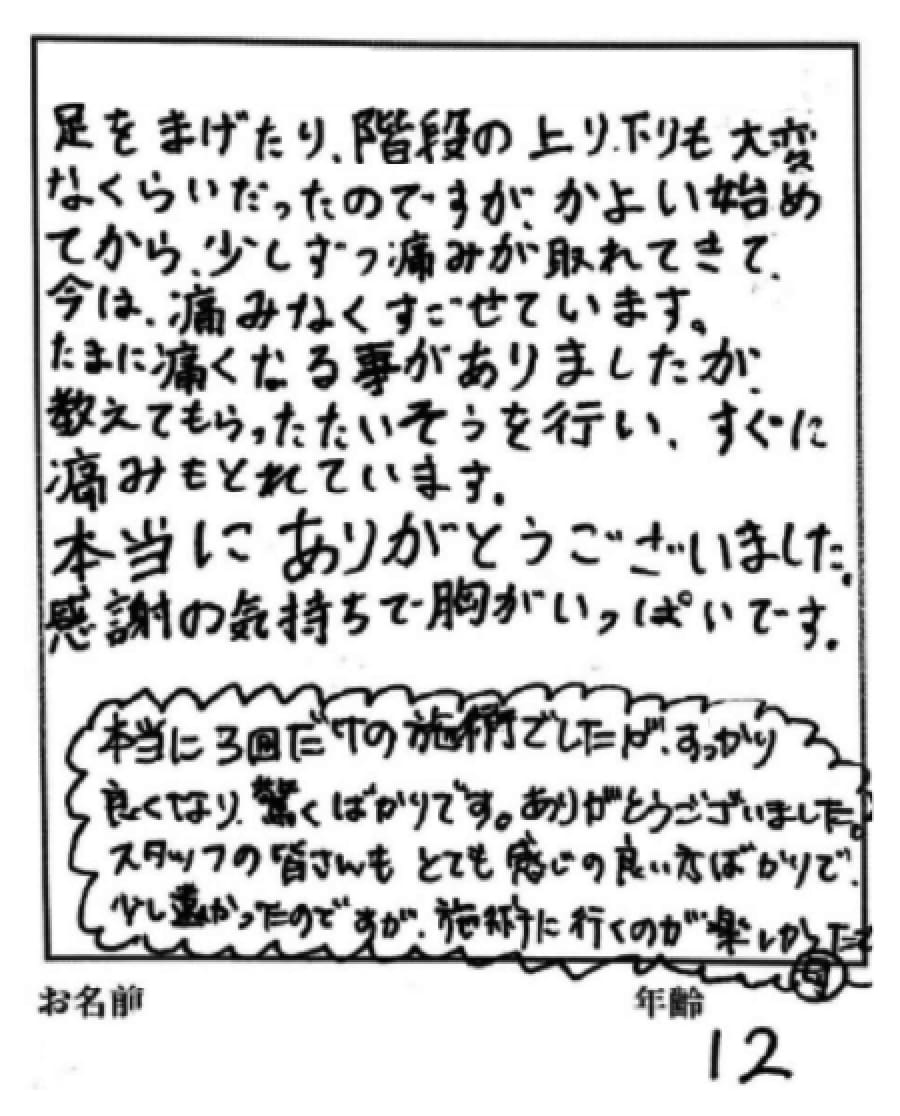 足をまげたり、階段の上り下りも大変
なくらいだったのですが、かよい始め
てから、少しずつ痛みが取れてきて、
今は、痛みなくすごせています。
たまに痛くなる事がありましたが、
教えてもらったたいそうを行い、すぐに
痛みもとれています。
本当にありがとうございました。
感謝の気持ちで胸がいっぱいです。
本当に3回だけの施術でしたが、すっかり
良くなり、驚くばかりです。ありがとうございました。
スタッフの皆さんも とても感じの良い方ばかりで、
少し遠かったのですが、施術に行くのが楽しかったと
母
お名前
年齢
12